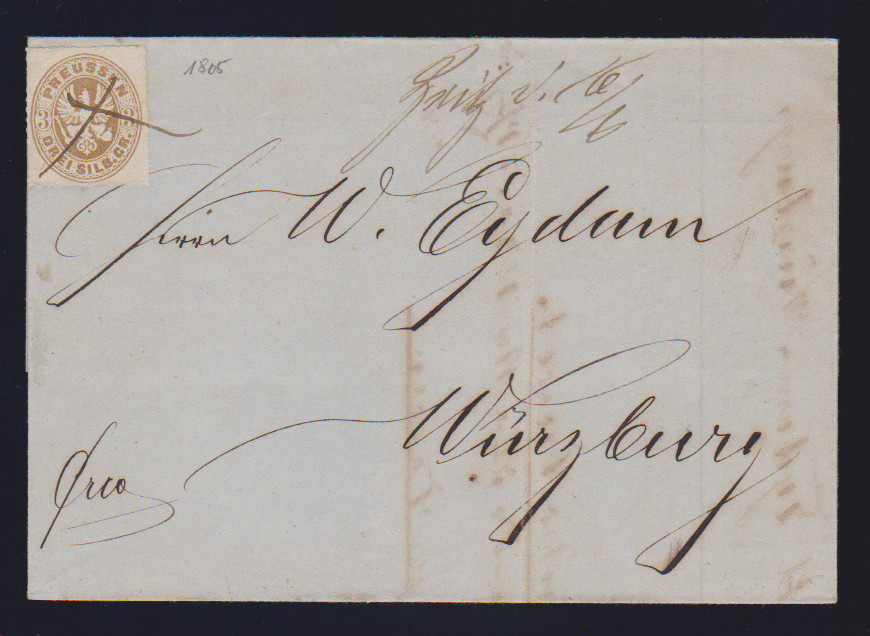 PREUSSEN
3 3
DREI SILB.GR.
1805
Herrn W. Eydam
Würzburg
frco